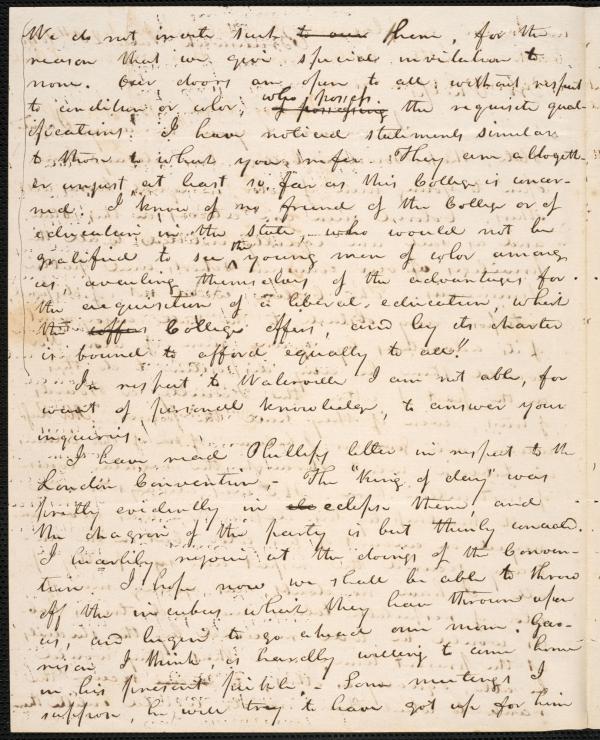 We do not invite such to our them, for the
reason that we give special invitation to
none. Our doors are open to all, without respect
to condition or color, who possess if possessing the requisite qual-
ifications. I have noticed statements similar
to those to which you refer. They are altogeth-
er unjust, at least so far as this College is concer-
ned. I know of no friend of the College or of
education in the state, who would not be
gratified to see the young men of color among
us, availing themselves of the advantages for
the acquisition of a liberal education, which
the offers College offers, and by its charter
is bound to afford equally to all."
In respect to Waterville I am not able, for
want of personal knowledge, to answer your
inquiries.
I have read Phillips letter in respect to the
London Convention, - The "King of day" was
pretty evidently in eclipse there, and
the chagrin of the party is but thinly conceald.
I heartily rejoice at the doings of the Conven-
tion. I hope now we shall be able to throw
off the incubus which they have thrown upon
us, and begin to go ahead once more. Gar-
rison, I think, is hardly willing to come home
in his present pickle. - Some meetings I
suppose, he will try to have got up for him